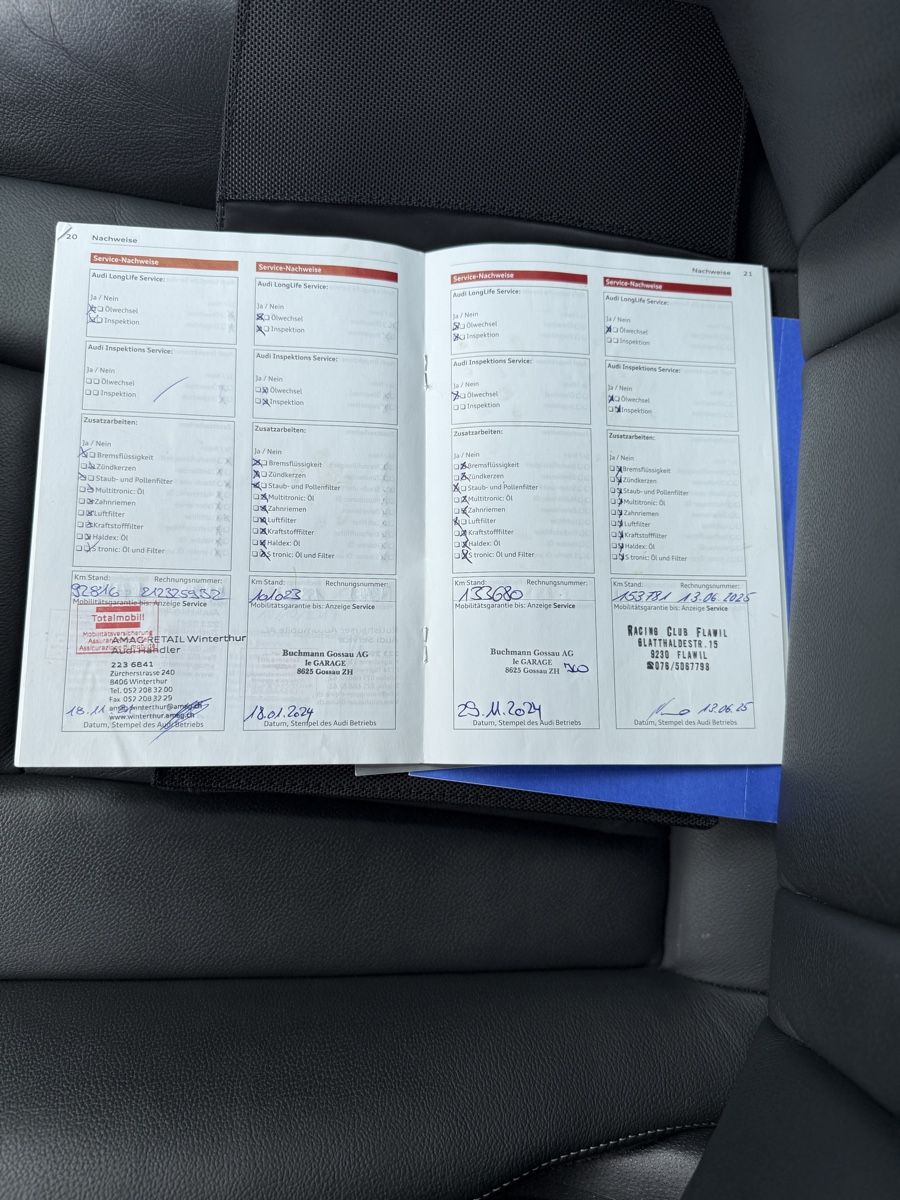 20 Nachweise
Service-Nachweise
Audi LongLife Service:
Ja / Nein
Ölwechsel
Inspektion
Audi Inspektions Service:
Ja / Nein
Ölwechsel
Inspektion
Zusatzarbeiten:
Ja / Nein
Bremsflüssigkeit
Zündkerzen
Staub- und Pollenfilter
Multitronic: Öl
Zahnriemen
Luftfilter
Kraftstofffilter
Haldex: Öl
S tronic: Öl und Filter
Km Stand: Rechnungsnummer:
92816
Mobilitätsgarantie bis: Anzeige Service
Totalmobil!
Mobilitätsversicherung
AMAG RETAIL Winterthur
Audi Händler
223 6841
Zürcherstrasse 240
8406 Winterthur
Tel. 052 208 32 00
Fax 052 208 32 29
www.winterthur.amag.ch
18.11.
Datum, Stempel des Audi Betriebs
Service-Nachweise
Audi LongLife Service:
Ja / Nein
Ölwechsel
Inspektion
Audi Inspektions Service:
Ja / Nein
Ölwechsel
Inspektion
Zusatzarbeiten:
Ja / Nein
Bremsflüssigkeit
Zündkerzen
Staub- und Pollenfilter
Multitronic: Öl
Zahnriemen
Luftfilter
Kraftstofffilter
Haldex: Öl
S tronic: Öl und Filter
Km Stand: Rechnungsnummer:
101023
Mobilitätsgarantie bis: Anzeige Service
Buchmann Gossau AG
le GARAGE
8625 Gossau ZH
18.01.2024
Datum, Stempel des Audi Betriebs
Nachweise 21
Service-Nachweise
Audi LongLife Service:
Ja / Nein
Ölwechsel
Inspektion
Audi Inspektions Service:
Ja / Nein
Ölwechsel
Inspektion
Zusatzarbeiten:
Ja / Nein
Bremsflüssigkeit
Zündkerzen
Staub- und Pollenfilter
Multitronic: Öl
Zahnriemen
Luftfilter
Kraftstofffilter
Haldex: Öl
S tronic: Öl und Filter
Km Stand: Rechnungsnummer:
133680
Mobilitätsgarantie bis: Anzeige Service
Buchmann Gossau AG
le GARAGE
8625 Gossau ZH
29.11.2024
Datum, Stempel des Audi Betriebs
Service-Nachweise
Audi LongLife Service:
Ja / Nein
Ölwechsel
Inspektion
Audi Inspektions Service:
Ja / Nein
Ölwechsel
Inspektion
Zusatzarbeiten:
Ja / Nein
Bremsflüssigkeit
Zündkerzen
Staub- und Pollenfilter
Multitronic: Öl
Zahnriemen
Luftfilter
Kraftstofffilter
Haldex: Öl
S tronic: Öl und Filter
Km Stand: Rechnungsnummer:
153781 13.06.2025
Mobilitätsgarantie bis: Anzeige Service
RACING CLUB FLAWIL
GLATTHALDESTR.15
9230 FLAWIL
☎076/5067798
13.06.25
Datum, Stempel des Audi Betriebs